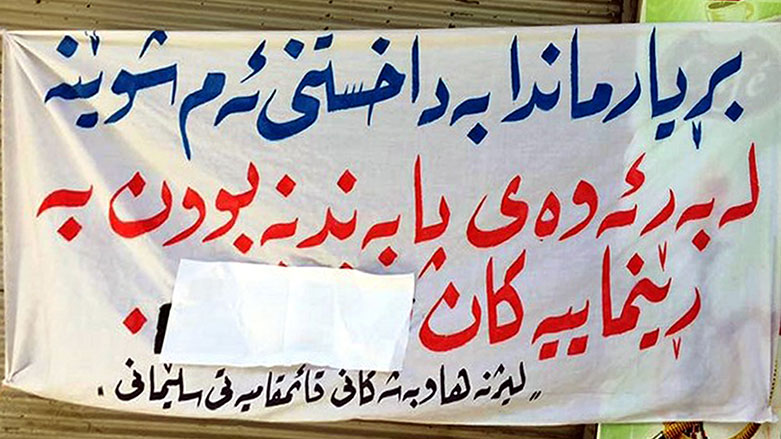 بڕیارماندا بە داخستنی ئەم شوێنە
لەبەرئەوەی پابەندنەبوون بە
ڕێنماییەکان
"لیژنە هاوبەشەکانی قائمقامیەتی سلێمانی".